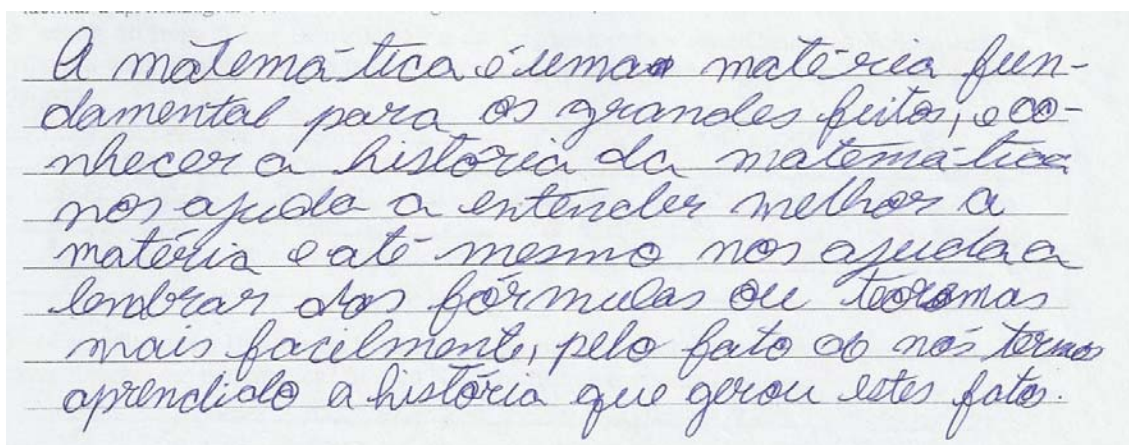 A matemática é uma matéria fun-
damental para os grandes feitos, e co-
nhecer a história da matemática
nos ajuda a entender melhor a
matéria e até mesmo nos ajuda a
lembrar das fórmulas ou teoremas
mais facilmente, pelo fato de nós termos
aprendido a história que gerou estes fatos.